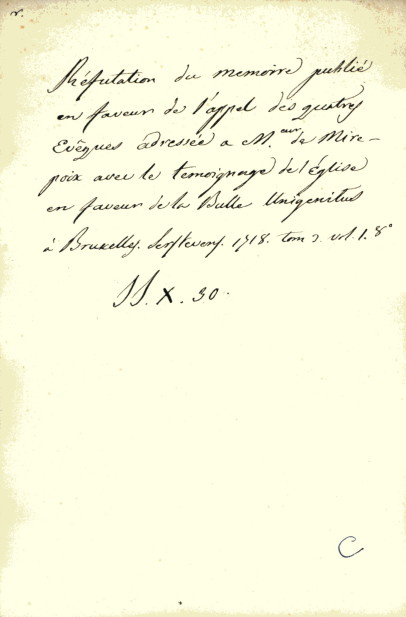 r.
Réfutation du memoire publié
en faveur de l'appel des quatres
Evêques adressée a M.eur de Mire-
poix avec le temoignage de l'Église
en faveur de la Bulle Unigenitus
à Bruxelles. Serstevens. 1718. tom 2. vol. 1. 8°
SS. X. 30.
C